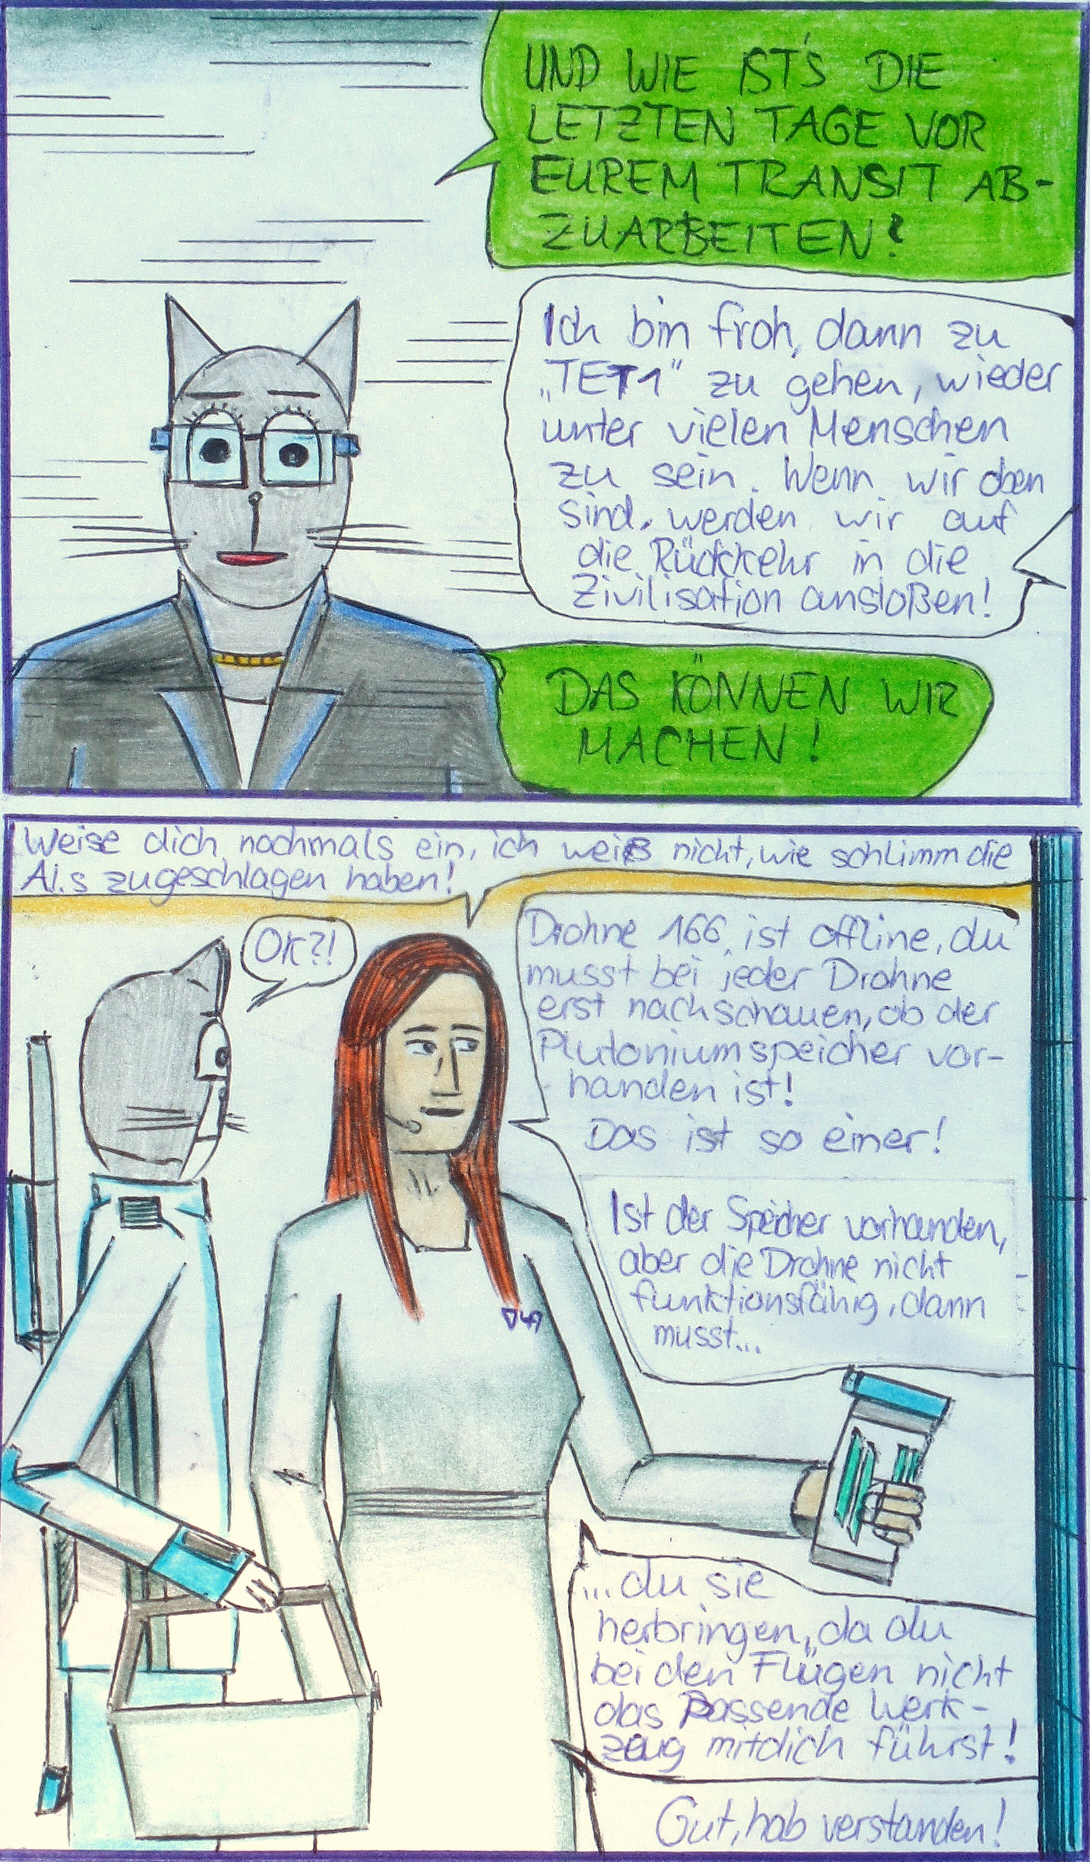 UND WIE IST'S DIE
LETZTEN TAGE VOR
EUREM TRANSIT AB-
ZUARBEITEN?
Ich bin froh, dann zu
„TET1" zu gehen, wieder
unter vielen Menschen
zu sein. Wenn wir oben
sind, werden wir auf
die Rückkehr in die
Zivilisation anstoßen!
DAS KÖNNEN WIR
MACHEN!
Weise dich nochmals ein, ich weiß nicht, wie schlimm die
AI.s zugeschlagen haben!
OK?!
Drohne 166 ist offline, du
musst bei jeder Drohne
erst nachschauen, ob der
Plutoniumspeicher vor-
handen ist!
Das ist so einer!
Ist der Speicher vorhanden,
aber die Drohne nicht
funktionsfähig, dann
musst...
...du sie
herbringen, da du
bei den Flügen nicht
das Passende Werk-
zeug mitdich führst!
Gut, hab verstanden!